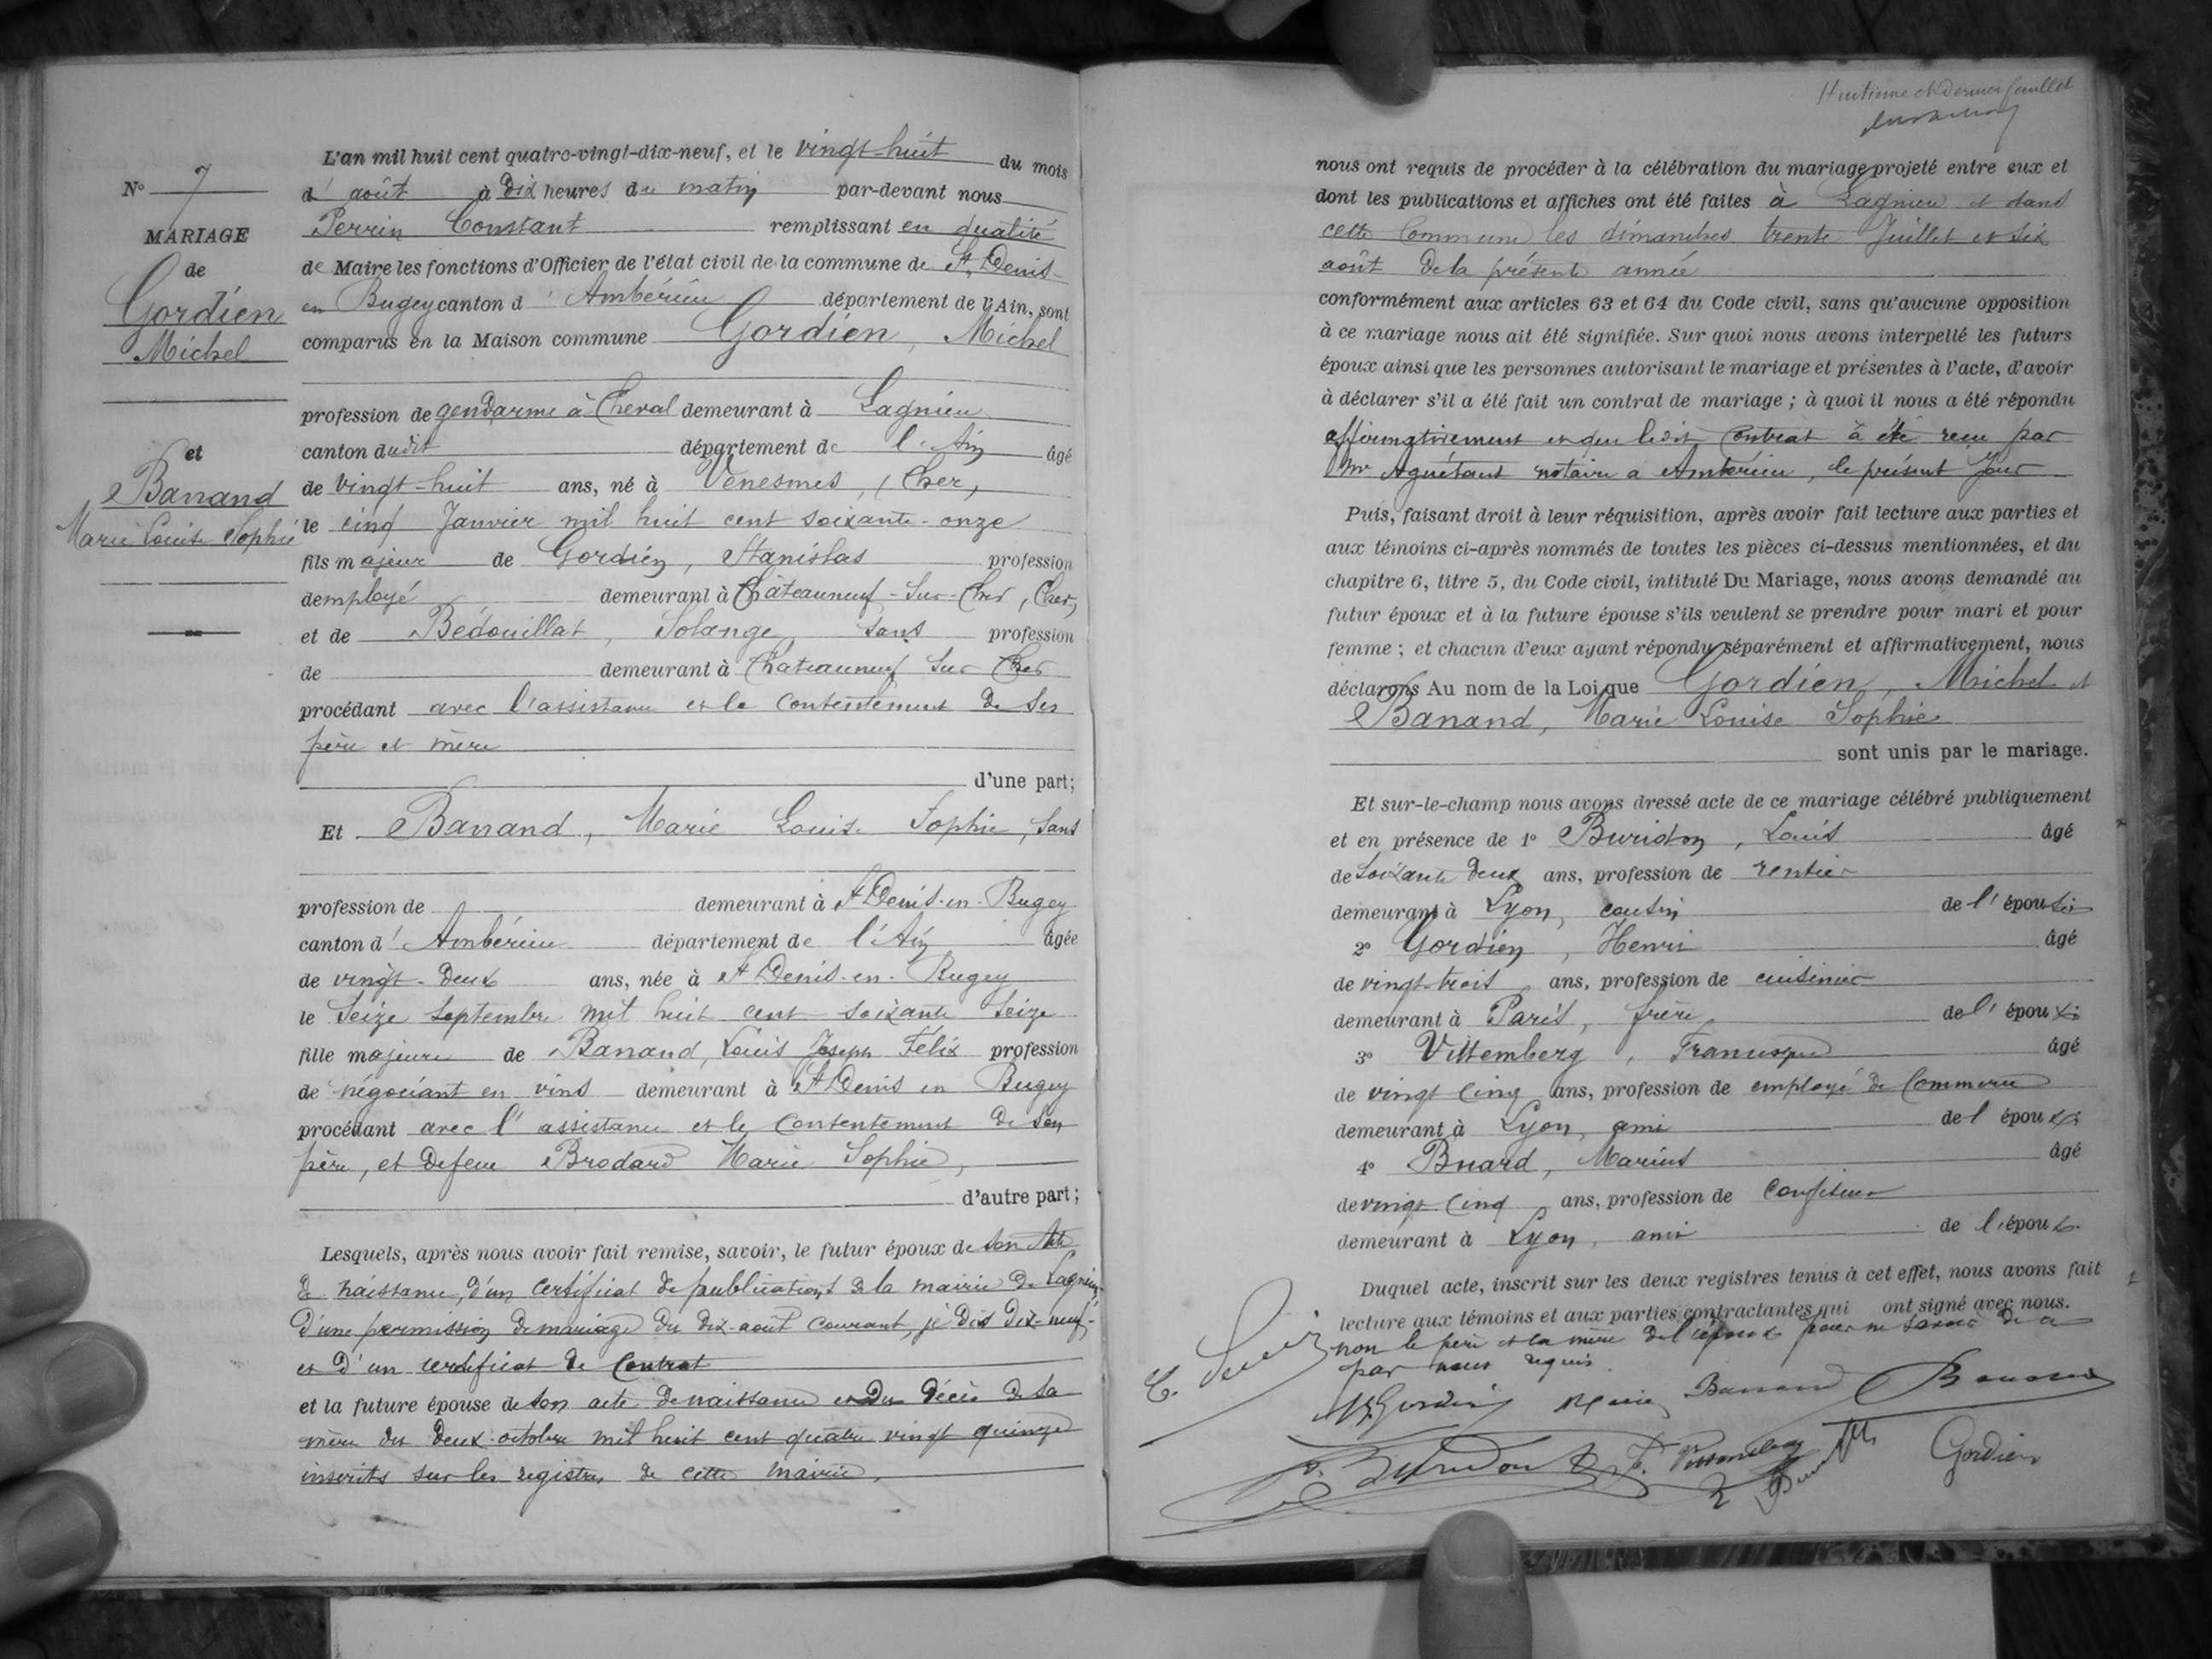 N° 7
MARIAGE
de
Gordien
Michel
et
Banand
Marie Louise Sophie
L'an mil huit cent quatre-vingt-dix-neuf, et le vingt-huit du mois
d'août à dix heures du matin par-devant nous
Perrin Constant remplissant en qualité
de Maire les fonctions d'Officier de l'état civil de la commune de St Denis
en Bugey canton d'Ambérieu département de l'Ain, sont
comparus en la Maison commune Gordien, Michel
profession de gendarme à Cheval demeurant à Lagnieu
canton dudit département de l'Ain âgé
de vingt-huit ans, né à Venesmes, (Cher,
le cinq Janvier mil huit cent soixante-onze
fils majeur de Gordien, Stanislas profession
d'employé demeurant à Châteauneuf-Sur-Cher, (Cher,
et de Bédouillat, Solange, sans profession
de demeurant à Chateauneuf Sur Cher
procédant avec l'assistance et le consentement de ses
père et mère
d'une part;
Et Banand, Marie Louise Sophie, sans
profession de demeurant à St Denis-en-Bugey
canton d'Ambérieu département de l'Ain âgée
de vingt-deux ans, née à St Denis-en-Bugey
le Seize Septembre mil huit cent soixante Seize
fille majeure de Banand, Louis Joseph Félix profession
de négociant en vins demeurant à St Denis en Bugey
procédant avec l'assistance et le consentement de son
père, et de feue Brodard Marie Sophie,
d'autre part;
Lesquels, après nous avoir fait remise, savoir, le futur époux de son acte
de naissance, d'un certificat de publications de la mairie de Lagnieu,
d'une permission de mariage du dix-août courant, je dis dix-neuf,
et d'un certificat de Contrat
et la future épouse de son acte de naissance et du décès de sa
mère du deux octobre mil huit cent quatre vingt quinze
inscrits sur les registres de cette mairie,
Huitième et dernier feuillet
nous ont requis de procéder à la célébration du mariage projeté entre eux et
dont les publications et affiches ont été faites à Lagnieu et dans
cette Commune les dimanches trente Juillet et six
août de la présente année
conformément aux articles 63 et 64 du Code civil, sans qu'aucune opposition
à ce mariage nous ait été signifiée. Sur quoi nous avons interpellé les futurs
époux ainsi que les personnes autorisant le mariage et présentes à l'acte, d'avoir
à déclarer s'il a été fait un contrat de mariage ; à quoi il nous a été répondu
affirmativement et que ledit Contrat a été reçu par
Me Aguétant notaire a Ambérieu, le présent Jour
Puis, faisant droit à leur réquisition, après avoir fait lecture aux parties et
aux témoins ci-après nommés de toutes les pièces ci-dessus mentionnées, et du
chapitre 6, titre 5, du Code civil, intitulé Du Mariage, nous avons demandé au
futur époux et à la future épouse s'ils veulent se prendre pour mari et pour
femme ; et chacun d'eux ayant répondu séparément et affirmativement, nous
déclarons Au nom de la Loi que Gordien, Michel et
Banand, Marie Louise Sophie
sont unis par le mariage.
Et sur-le-champ nous avons dressé acte de ce mariage célébré publiquement
et en présence de 1° Buridon, Louis âgé
de Soixante deux ans, profession de rentier
demeurant à Lyon, cousin de l'épouse
2° Gordien, Henri âgé
de vingt-trois ans, profession de cuisinier
demeurant à Paris, frère de l'époux
3° Vittemberg, âgé
de vingt cinq ans, profession de employé de Commerce
demeurant à Lyon, ami de l'époux
4° Buard, Marius âgé
de vingt cinq ans, profession de Confiseur
demeurant à Lyon, ami de l'époux
Duquel acte, inscrit sur les deux registres tenus à cet effet, nous avons fait
lecture aux témoins et aux parties contractantes qui ont signé avec nous.
non le père et la mère de l'époux pour ne savoir de ce
par nous requis.
M. Gordien Marie Banand Banand
Buridon F. Vittemberg Gordien